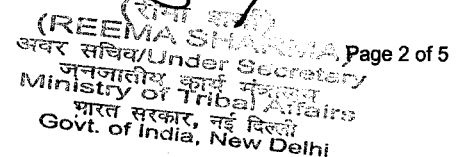 (रीमा शर्मा)
(REEMA SHARMA)
Page 2 of 5
अवर सचिव/Under Secretary
जनजातीय कार्य मंत्रालय
Ministry of Tribal Affairs
भारत सरकार, नई दिल्ली
Govt. of India, New Delhi